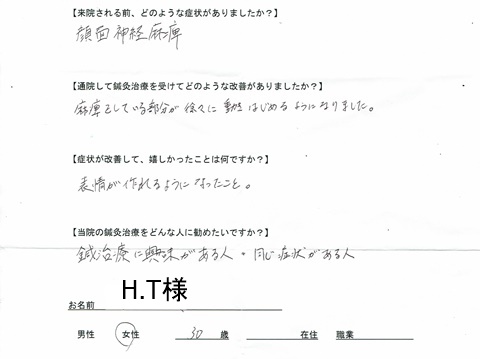 【来院される前、どのような症状がありましたか？】
顔面神経麻痺
【通院して鍼灸治療を受けてどのような改善がありましたか？】
麻痺している部分が徐々に動きはじめるようになりました。
【症状が改善して、嬉しかったことは何ですか？】
表情が作れるようになったこと。
【当院の鍼灸治療をどんな人に勧めたいですか？】
鍼治療に興味がある人・同じ症状がある人
お名前 H.T様
男性 女性 30 歳 在住 職業